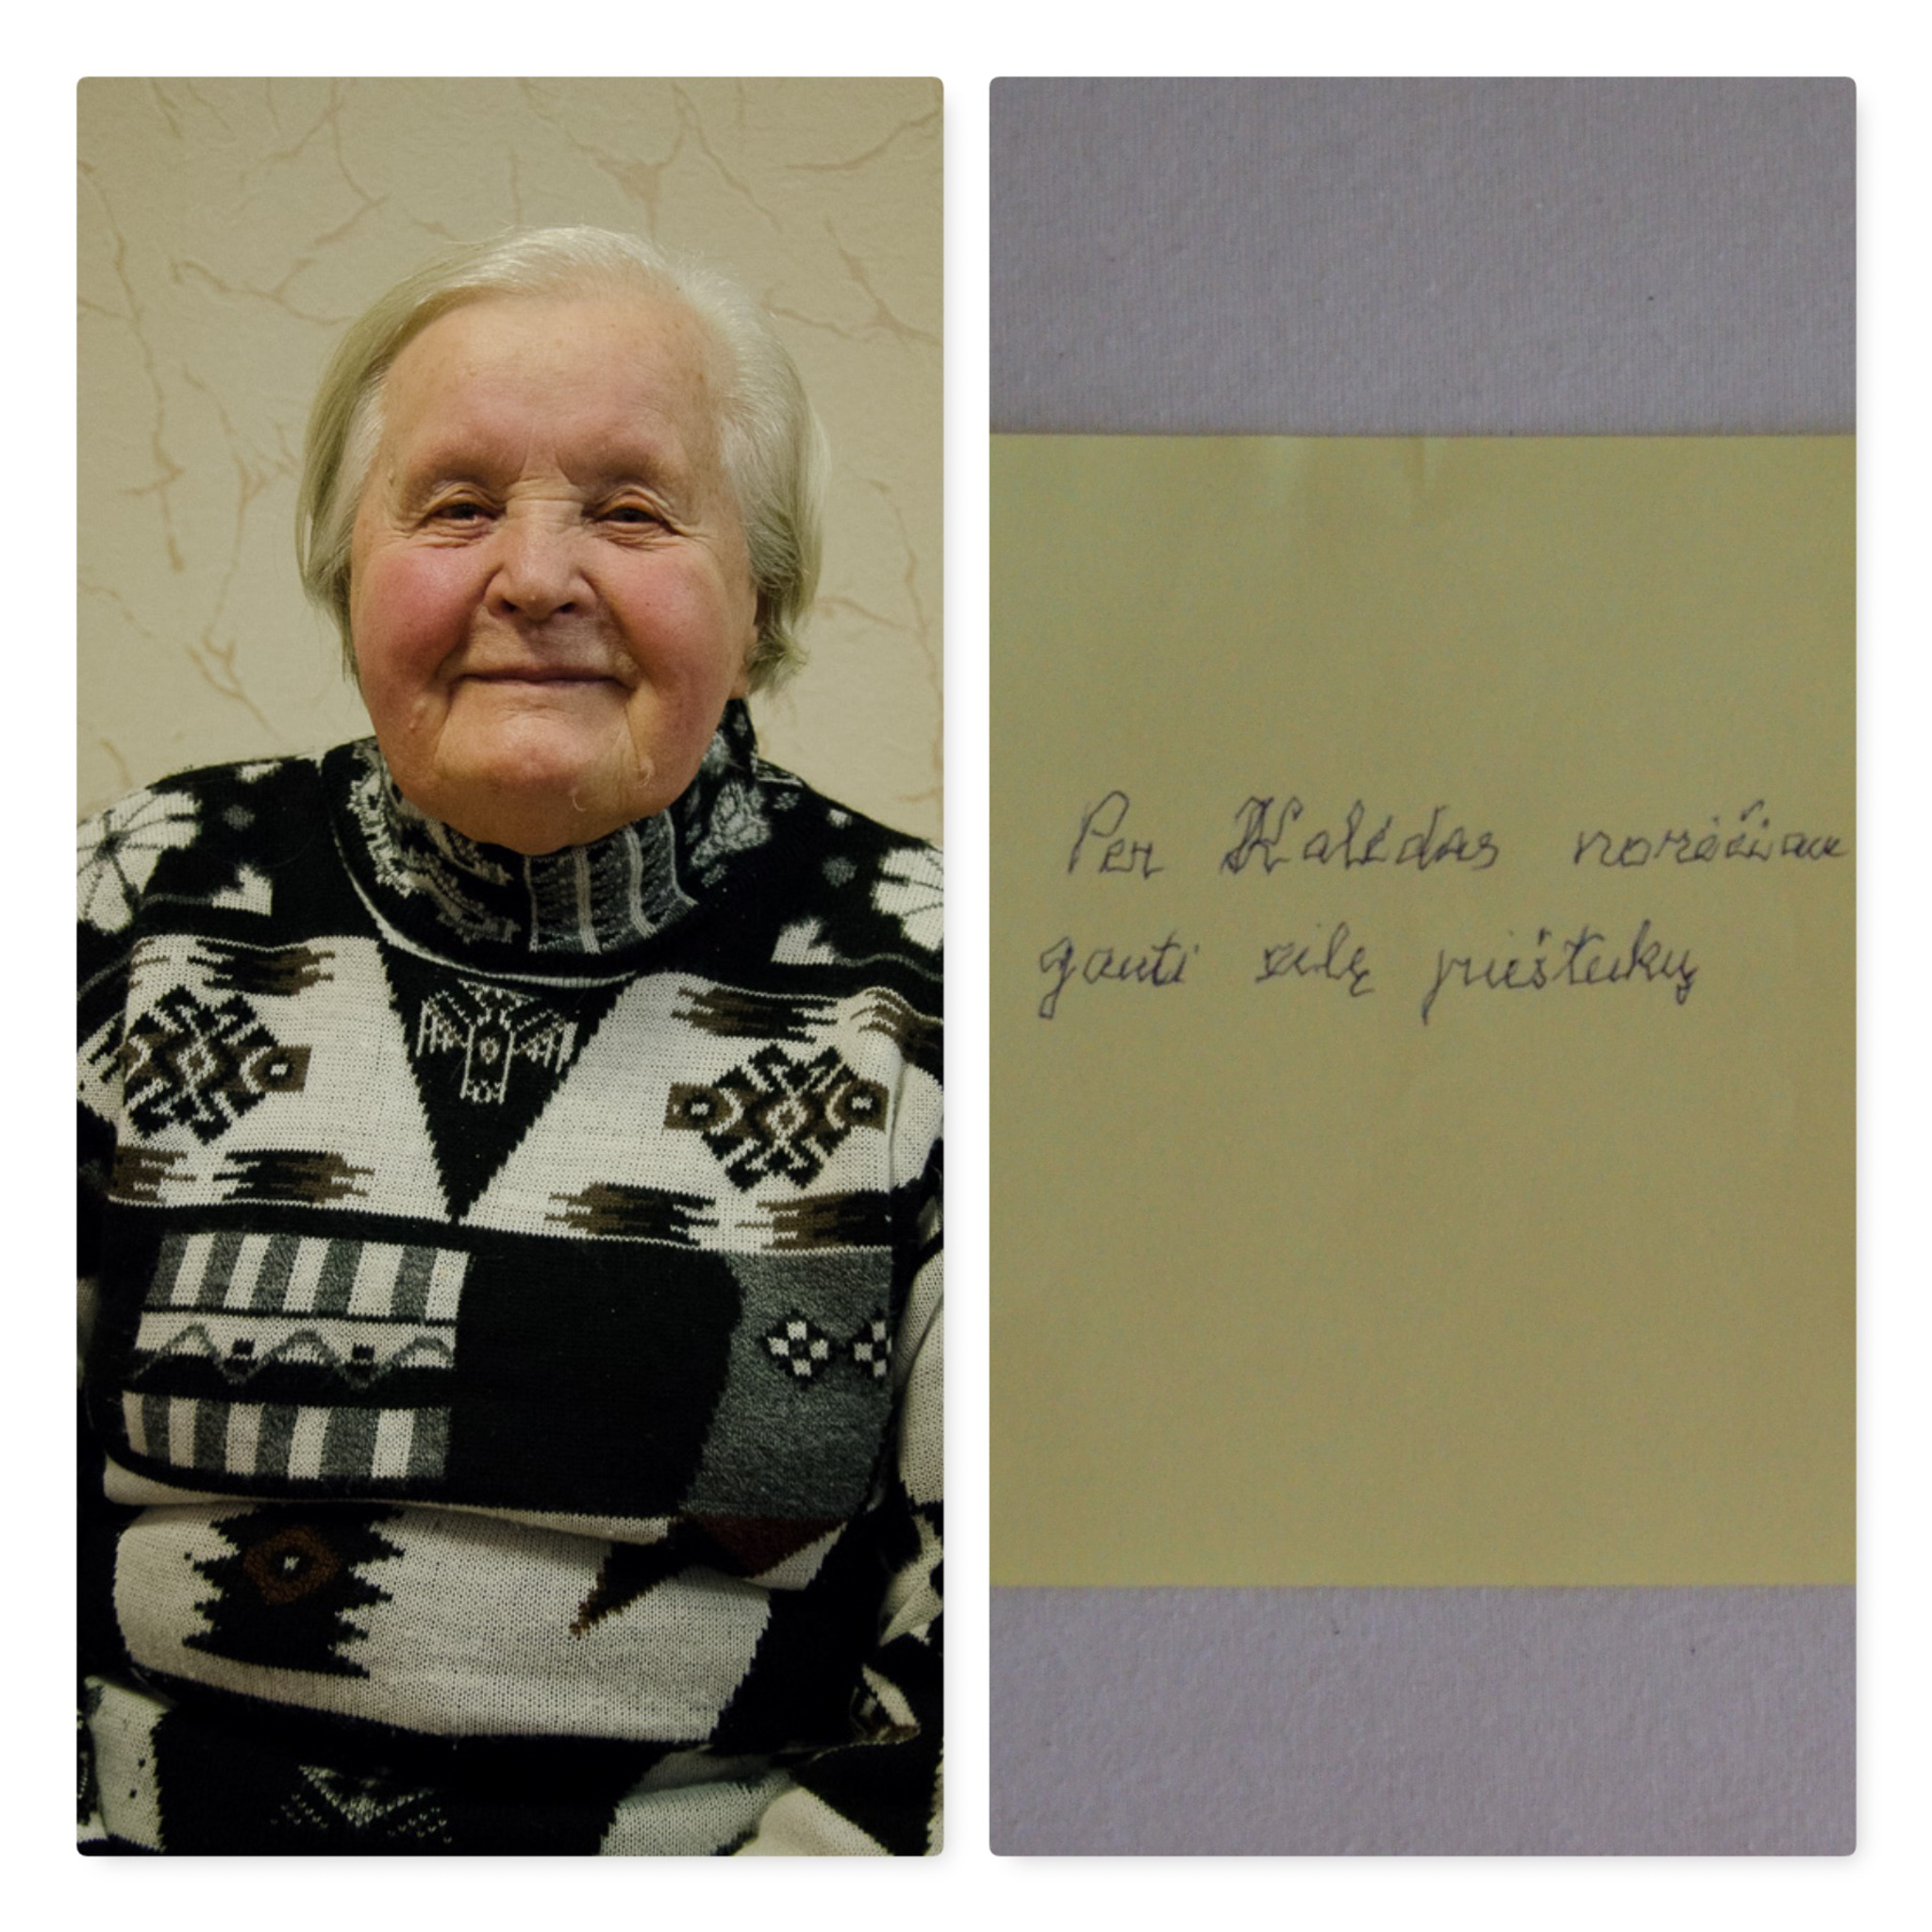 Per Kalėdas norėčiau
gauti eilę pieštukų